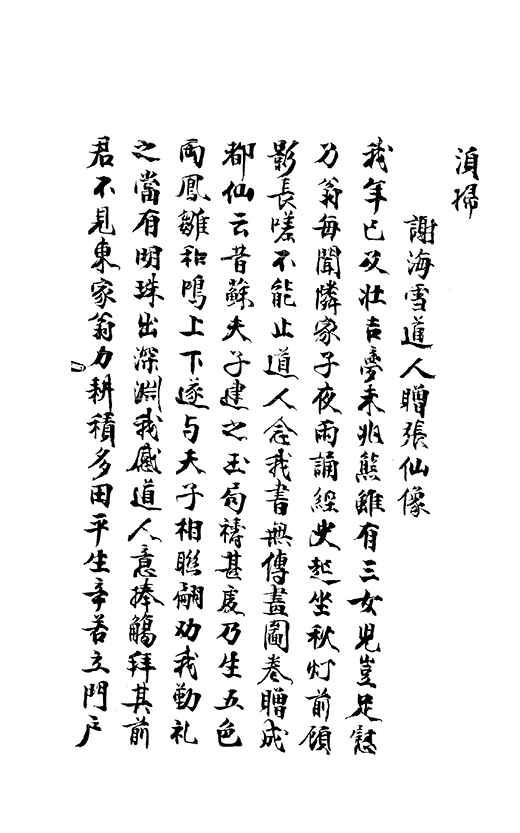 須掃
謝海雪道人贈張仙像
我年已及壮吉夢未兆熊雖有三女児豈足慰
乃翁每聞憐家子夜雨誦經史起坐秋灯前顧
影長嗟不能止道人念我書無傳畫圖卷贈成
都仙云昔蘇夫子建之玉局禱甚虔乃生五色
兩鳳雛和鳴上下遂与天子相聮翩劝我勤礼
之當有明珠出深淵我感道人意捧觴拜其前
君不見東家翁力耕積多田平生辛苦立門户